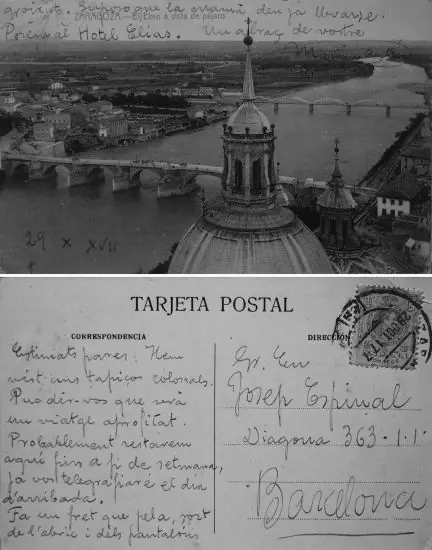 groixut. Suposo que la mamà deu ja llevarse.
ZARAGOZA.- El Ebro á vista de pájaro
Hotel Elias. Un abraç de vostre
29 X XVII
TARJETA POSTAL
CORRESPONDENCIA
DIRECCIÓN
Estimats pares: Hem
vist uns tapiços colosals.
Puc dir-vos que serà
un viatge aprofitat.
Probablement restarem
aquí fins a fi de setmana,
ja vos telegrafiaré el dia
d'arribada.
Fa un fret que pela, sort
de l'abric i dels pantalons
Sr. En
Josep Espinal
Diagonal 363-1-1ª
Barcelona